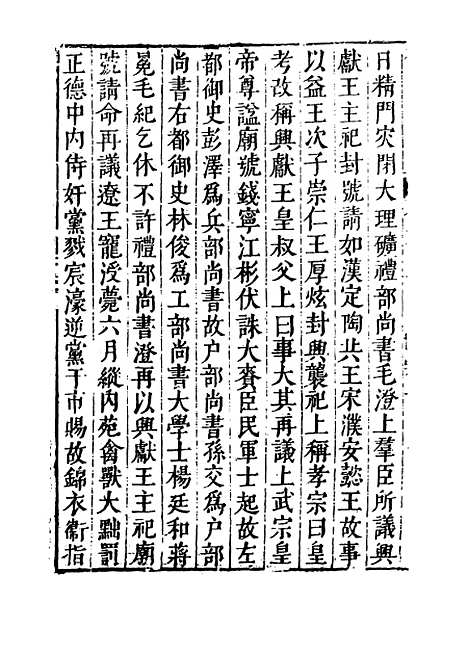 日精門灾閉大理礦禮部尚書毛澄上羣臣所議興
獻王主祀封號請如漢定陶共王宋濮安懿王故事
以益王次子崇仁王厚炫封興襲祀上稱孝宗曰皇
考改稱興獻王皇叔父上曰事大其再議上武宗皇
帝尊諡廟號錢寧江彬伏誅大賚臣民軍士起故左
都御史彭澤爲兵部尚書故户部尚書孫交爲户部
尚書右都御史林俊爲工部尚書大學士楊廷和蔣
冕毛紀乞休不許禮部尚書澄再以興獻王主祀廟
號請命再議遼王寵涭薨六月縱内苑禽獸大黜罰
正德中内侍奸黨戮宸濠逆黨于市賜故錦衣衞指